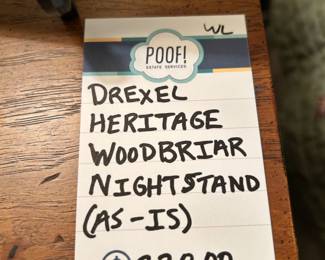 WL
POOF!
ESTATE SERVICES
DREXEL
HERITAGE
WOODBRIAR
NIGHTSTAND
(AS-IS)